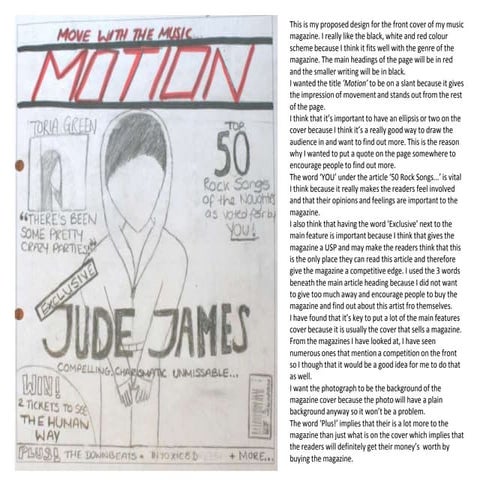 MOVE WITH THE MUSIC...
MOTION
TORIA GREEN
"THERE'S BEEN
SOME PRETTY
CRAZY PARTIES"
TOP
50
Rock Songs
of the Noughties
as voted for by
YOU!
EXCLUSIVE
JUDE JAMES
COMPELLING. CHARISMATIC. UNMISSABLE...
WIN!
2 TICKETS TO SEE
THE HUMAN
WAY
PLUS! THE DOWNBEATS • INTOXICED + MORE...
This is my proposed design for the front cover of my music
magazine. I really like the black, white and red colour
scheme because I think it fits well with the genre of the
magazine. The main headings of the page will be in red
and the smaller writing will be in black.
I wanted the title 'Motion' to be on a slant because it gives
the impression of movement and stands out from the rest
of the page.
I think that it's important to have an ellipsis or two on the
cover because I think it's a really good way to draw the
audience in and want to find out more. This is the reason
why I wanted to put a quote on the page somewhere to
encourage people to find out more.
The word 'YOU' under the article '50 Rock Songs...' is vital
I think because it really makes the readers feel involved
and that their opinions and feelings are important to the
magazine.
I also think that having the word 'Exclusive' next to the
main feature is important because I think that gives the
magazine a USP and may make the readers think that this
is the only place they can read this article and therefore
give the magazine a competitive edge. I used the 3 words
beneath the main article heading because I did not want
to give too much away and encourage people to buy the
magazine and find out about this artist fro themselves.
I have found that it's key to put a lot of the main features
cover because it is usually the cover that sells a magazine.
From the magazines I have looked at, I have seen
numerous ones that mention a competition on the front
so I though that it would be a good idea for me to do that
as well.
I want the photograph to be the background of the
magazine cover because the photo will have a plain
background anyway so it won't be a problem.
The word 'Plus!' implies that their is a lot more to the
magazine than just what is on the cover which implies that
the readers will definitely get their money's worth by
buying the magazine.